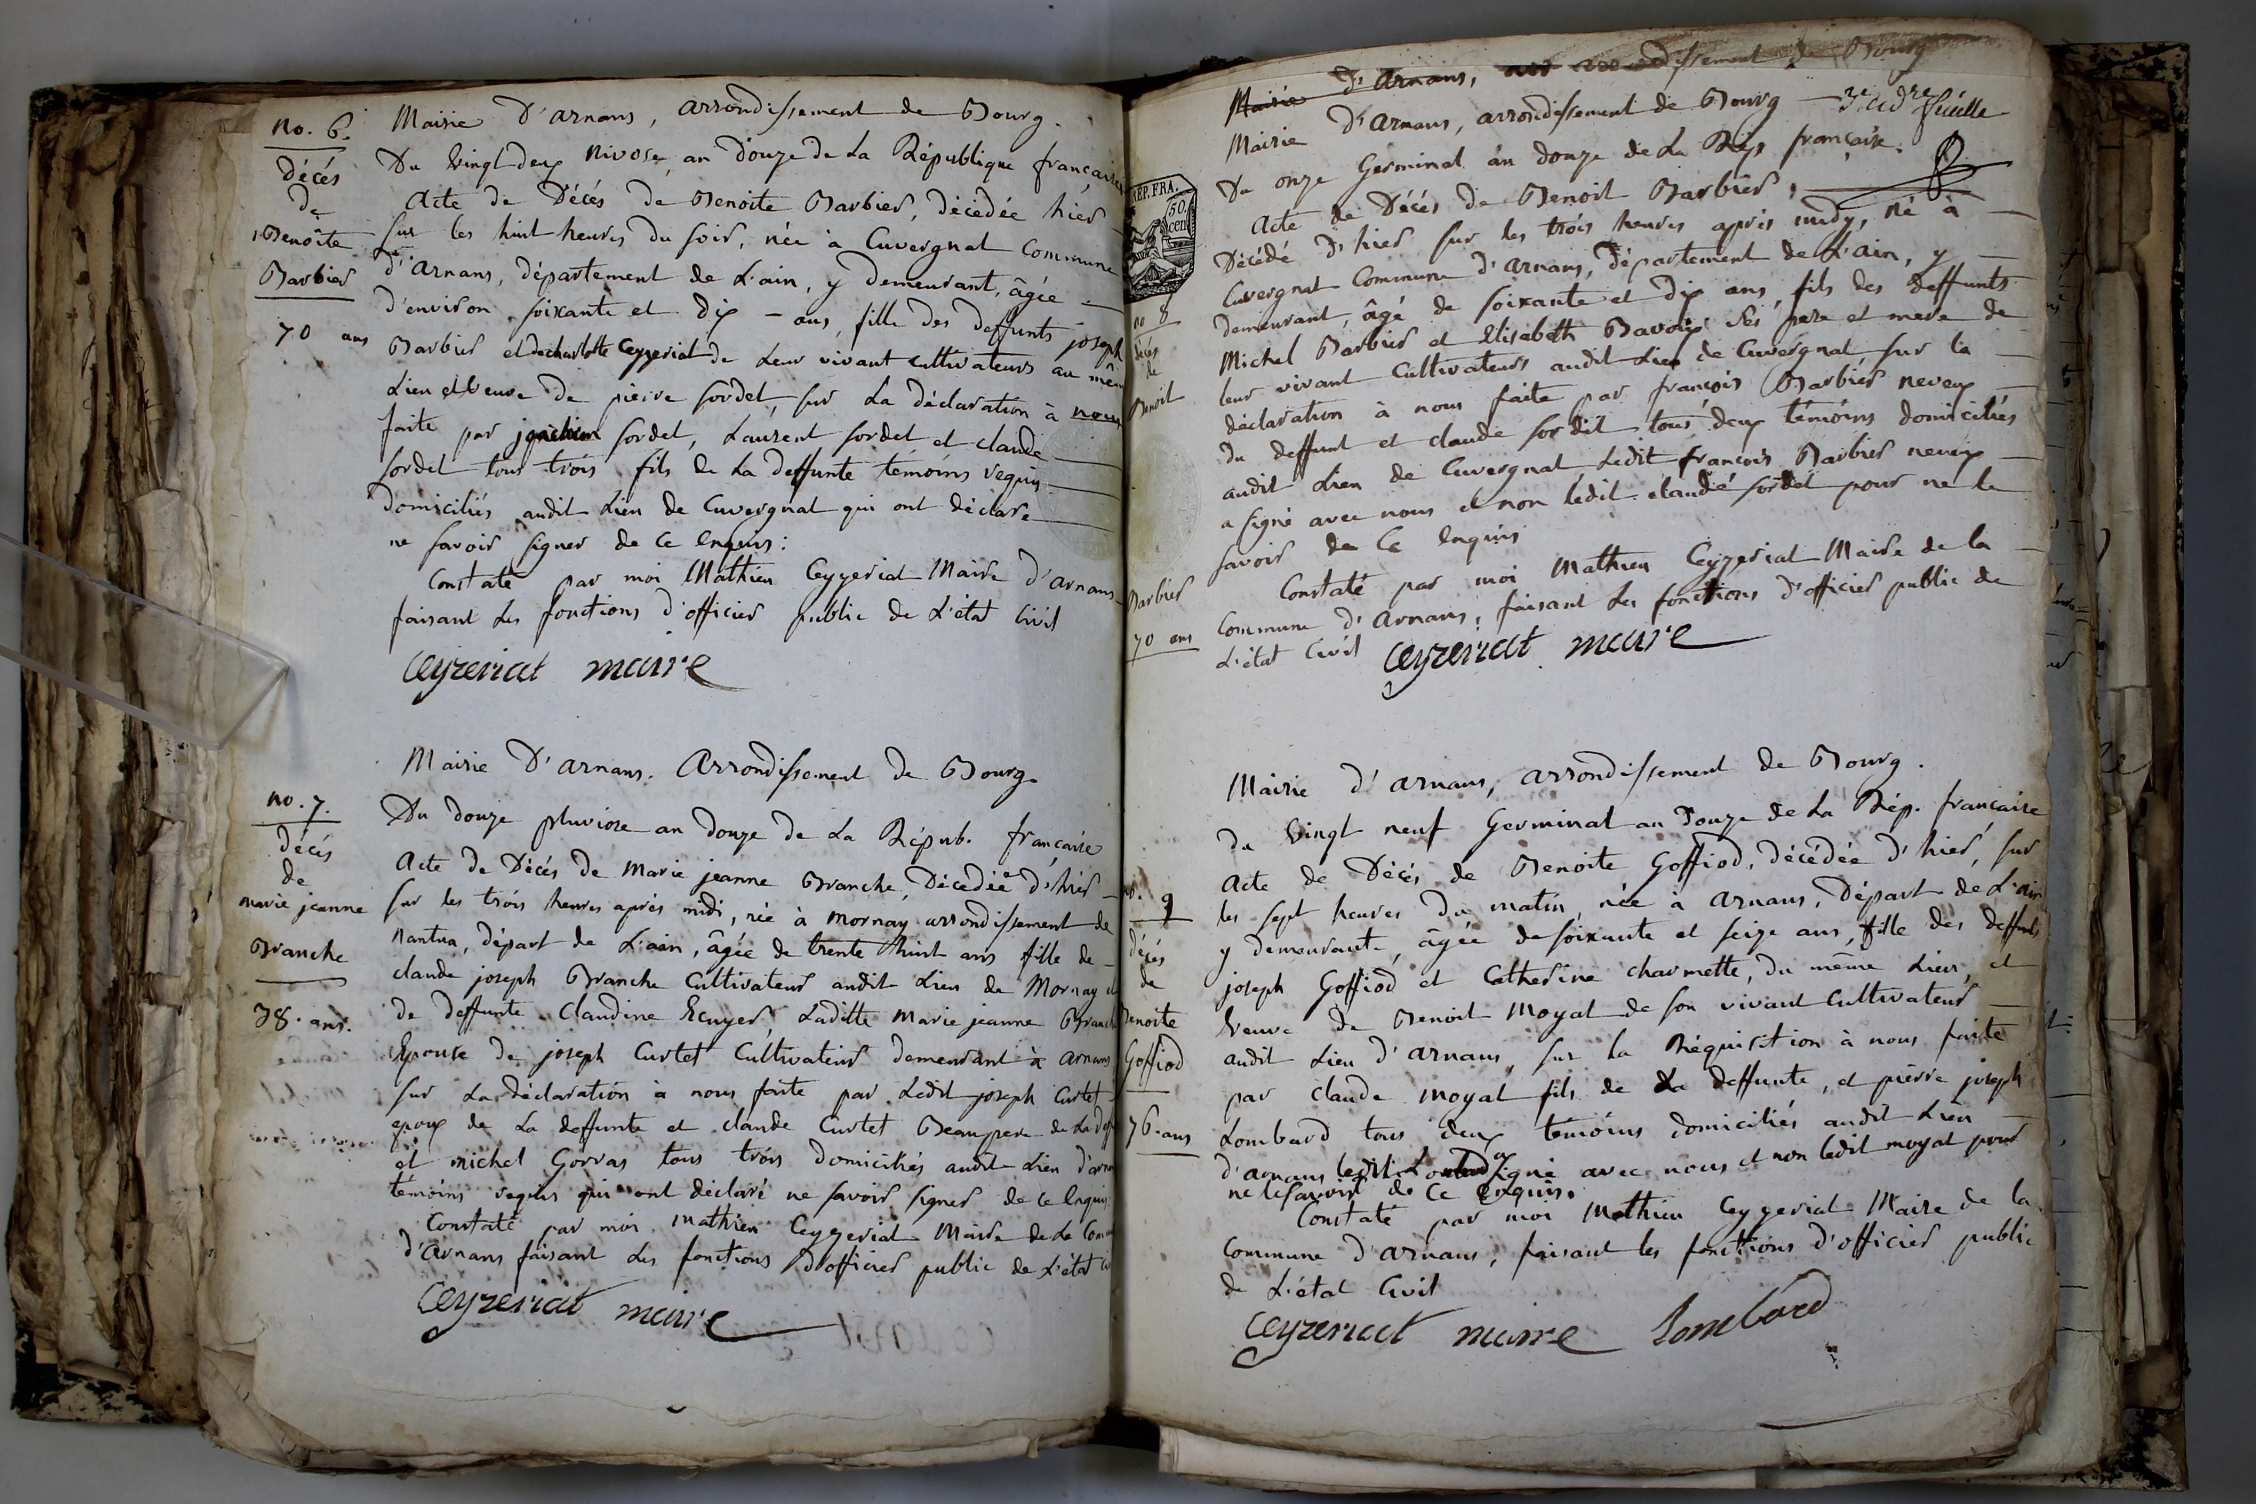 no. 6.
Décés
de
Benoîte
Barbier
70 ans
Mairie D'arnans, arrondissement de Bourg.
Du vingt deux Nivose, an douze de La République française
Acte de Décés de Benoite Barbier, décédée hier
sur les huit heures du soir, née à Cuvergnat Commune
d'arnans, département de L'ain, y demeurant, âgée
d'environ soixante et dix - ans, fille des deffunts joseph
Barbier et de charlotte Ceyzeriat de Leur vivant cultivateurs au même
Lieu et veuve de pierre sordet, sur La déclaration à nous
faite par joachim sordet, Laurent sordet et claude
sordet tous trois fils de La deffunte témoins requis
domiciliés audit Lieu de Cuvergnat qui ont déclaré
ne savoir signer de ce enquis:
Constaté par moi Mathieu Ceyzeriat Maire d'arnans
faisant Les fonctions d'officier public de L'état Civil
Ceyzeriat maire
no. 7.
décés
de
marie jeanne
Branche
38. ans.
Mairie D'arnans. Arrondissement de Bourg.
Du douze pluviose an douze de La Répub. française
Acte de Décés de Marie jeanne Branche, Décedée d'hier
sur les trois heures après midi, née à Mornay arrondissement de
Nantua, départ de L'ain, âgée de trente huit ans fille de
claude joseph Branche Cultivateur audit Lieu de Mornay et
de deffunte Claudine Ecuyer, Laditte Marie jeanne Branche
Epouse de joseph Curtet Cultivateur demeurant à arnans
sur La déclaration à nous faite par Ledit joseph Curtet
epoux de La deffunte et claude Curtet Beaupere de La
et michel Gorras tous trois domiciliés audit Lieu
témoins requis qui ont déclaré ne savoir signer de ce Enquis
Constaté par moi Mathieu Ceyzeriat Maire de La
d'Arnans faisant Les fonctions d'officier public de L'état
Ceyzeriat maire
Mairie d'Arnans, arrondissement de Bourg
Mairie D'Arnans, arrondissement de Bourg
feuille
Du onze Germinal an douze de La Rép française.
REP. FRA.
50.
cen
no 8
décés
de
Benoit
Barbier
70 ans
Acte de Décés de Benoit Barbier,
Décédé d'hier sur les trois heures après midy, né à
Cuvergnat Commune d'arnans, département de L'ain, y
demeurant, âgé de soixante et dix ans, fils des deffunts
Michel Barbier et Elisabeth Bavoux ses pere et mere de
leur vivant Cultivateurs audit Lieu de Cuvergnat, sur la
déclaration à nous faite par françois Barbier neveux
du deffunt et claude sordet tous deux témoins domiciliés
audit Lieu de Cuvergnat Ledit françois Barbier neveux
a signé avec nous et non ledit claude sordet pour ne le
savoir de ce enquis
Constaté par moi Mathieu Ceyzeriat Maire de la
Commune d'Arnans, faisant Les fonctions d'officier public de
L'état Civil
Ceyzeriat maire
9
décés
de
Benoite
Goffiod
76. ans
Mairie d'arnans, arrondissement de Bourg.
du vingt neuf Germinal an Douze de La Rép. française
Acte de Décés de Benoite Goffiod, décédée d'hier, sur
les sept heures du matin, née à arnans, Départ de L'ain
y demeurante, âgée de soixante et seize ans, fille des deffunts
joseph Goffiod et Catherine charmette, du même Lieu, et
Veuve de Benoit Moyat de son vivant Cultivateur
audit Lieu d'arnans, sur la Réquisition à nous faite
par claude moyat fils de La deffunte, et pierre joseph
Lombard tous deux témoins domiciliés audit Lieu
d'arnans ledit Lombard a signé avec nous et non ledit moyat pour
ne le savoir de ce enquis.
Constaté par moi Mathieu Ceyzeriat Maire de la
Commune d'arnans, faisant les fonctions d'officier public
de L'état Civil
Ceyzeriat maire Lombard